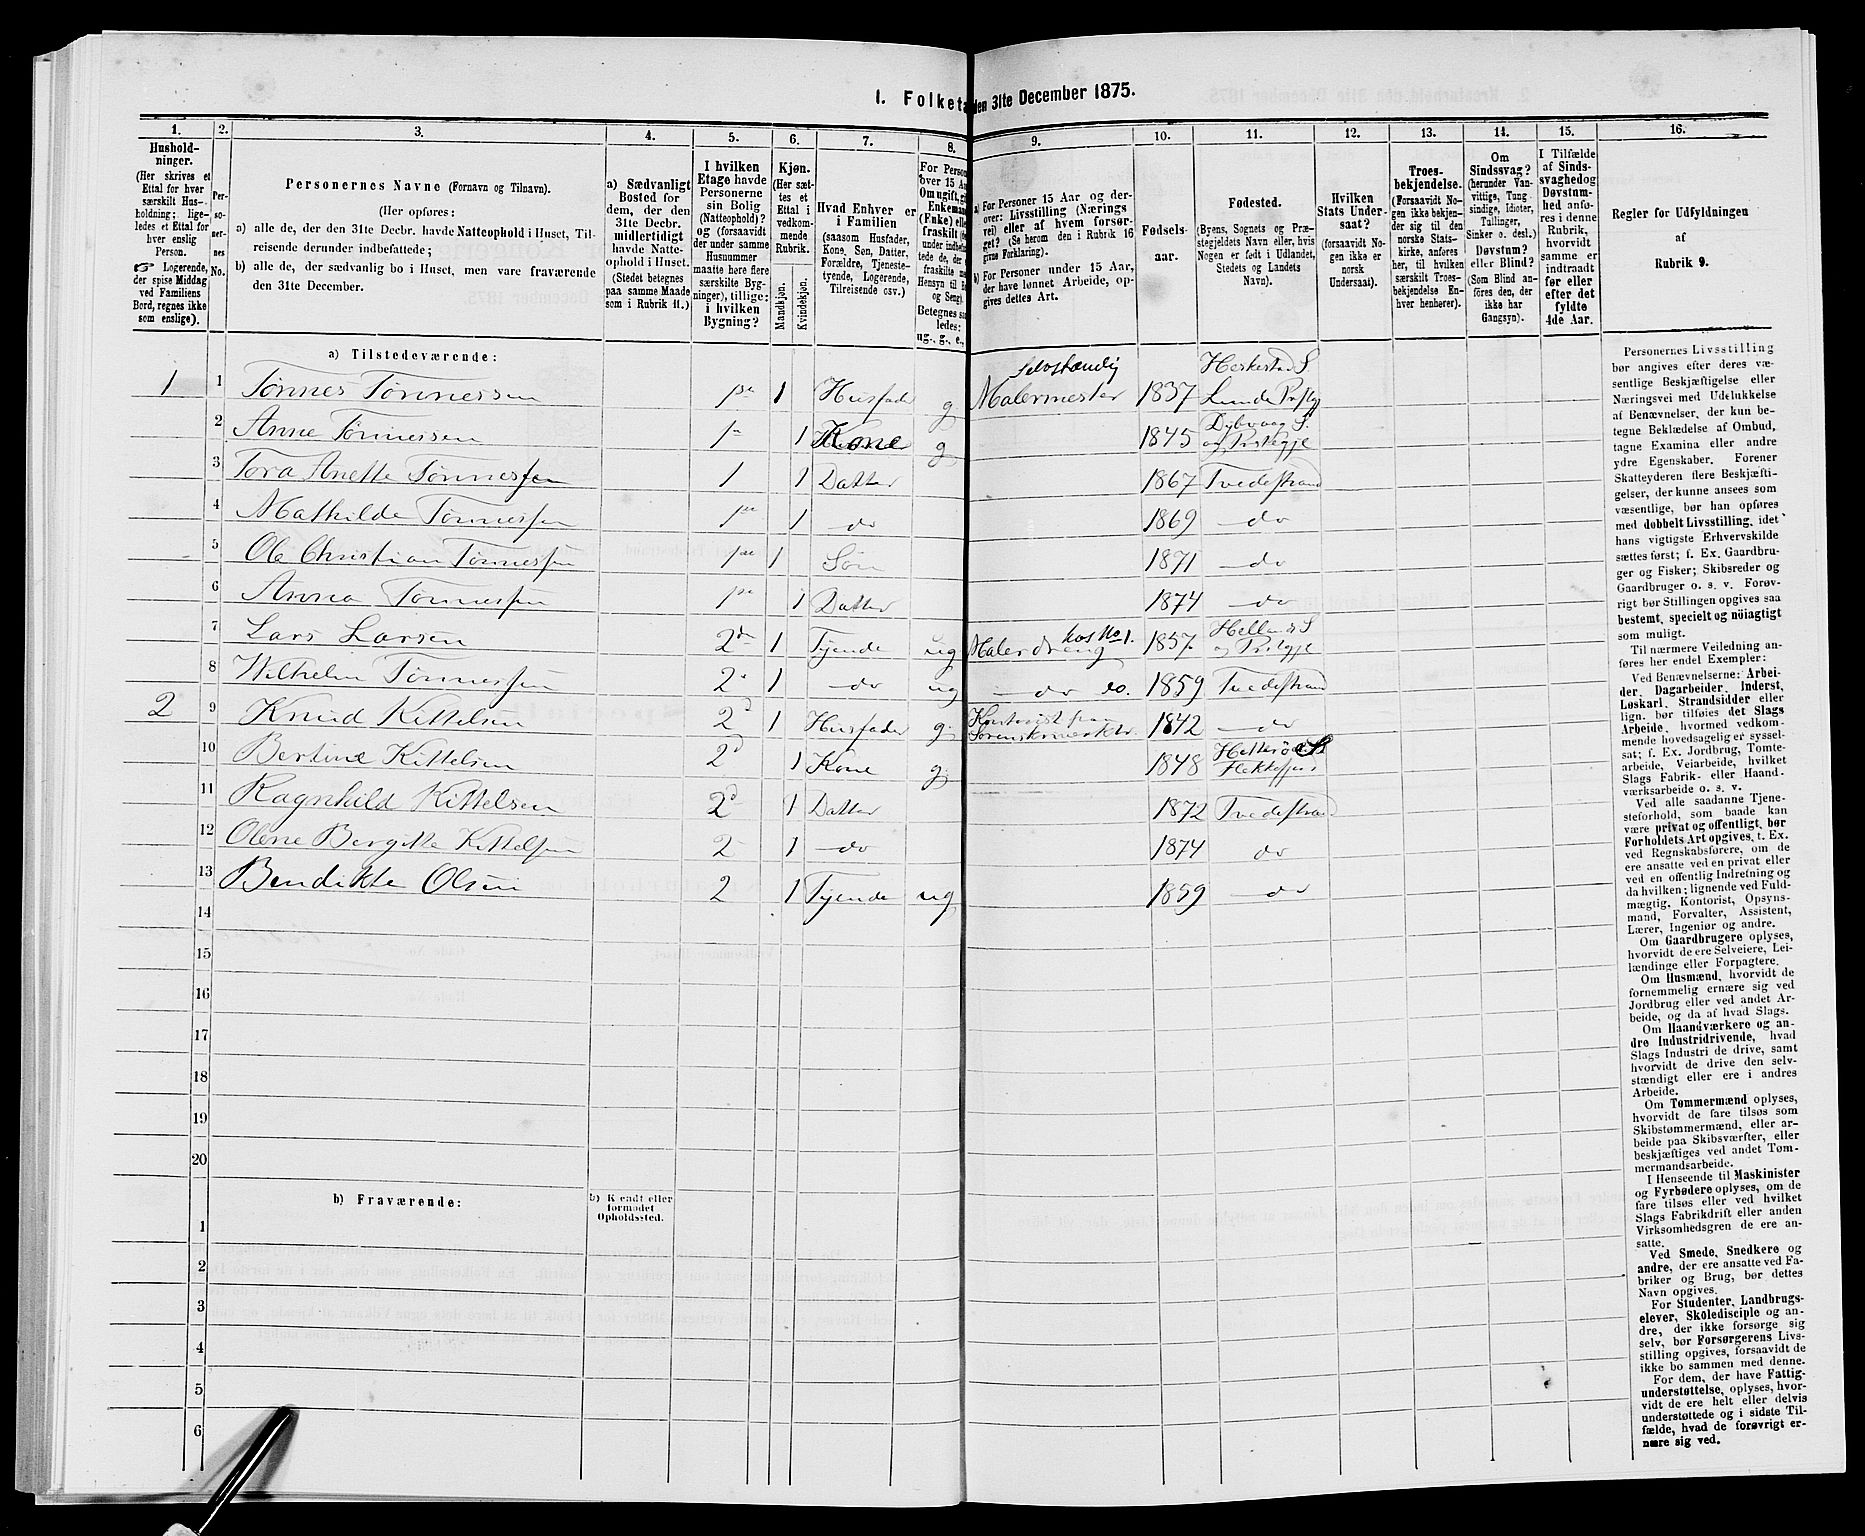 1. Folketæ den 31te December 1875.
1. 2. 3. 4. 5. 6. 7. 8. 9. 10. 11. 12. 13. 14. 15. 16.
Hushold-
ninger.
(Her skrives et
Ettal for hver
særskilt Hus-
holdning; lige-
ledes et Ettal for
hver enslig
Person.
☞ Logerende,
der spise Middag
ved Familiens
Bord, regnes ikke
som enslige).
Per-
so-
ner-
nes
No.
Personernes Navne (Fornavn og Tilnavn).
(Her opføres:
a) alle de, der den 31te Decbr. havde Natteophold i Huset, Til-
reisende derunder indbefattede;
b) alle de, der sædvanlig bo i Huset, men vare fraværende
den 31te December.
a) Sædvanligt
Bosted for
dem, der den
31te Decbr.
midlertidigt
havde Natte-
ophold i Huset.
(Stedet betegnes
paa samme Maade
som i Rubrik 11.)
I hvilken
Etage havde
Personerne
sin Bolig
(Natteophold)?
og (forsaavidt
der under samme
Husnummer
maatte høre flere
særskilte Byg-
ninger), tillige:
i hvilken
Bygning?
Kjøn.
(Her sæt-
tes et
Ettal i
vedkom-
mende
Rubrik.
Mandkjøn.
Kvindekjøn.
Hvad Enhver er
i Familien
(saasom Husfader,
Kone, Søn, Datter,
Forældre, Tjeneste-
tyende, Logerende,
Tilreisende osv.)
For Person
over 15 Aa
Om ugift, gi
Enkeman
(Enke) elle
fraskilt
Betegnes saa
ledes:
ug., g., e.,
a) For Personer 15 Aar og der-
over: Livsstilling (Nærings
vei) eller af hvem forsør-
get? (Se herom den i Rubrik 16
givne Forklaring).
b) For Personer under 15 Aar,
der have lønnet Arbeide, op-
gives dettes Art.
Fødsels-
aar.
Fødested.
(Byens, Sognets og Præ-
stegjeldets Navn eller, hvis
Nogen er født i Udlandet,
Stedets og Landets
Navn).
Hvilken
Stats Under-
saat?
(forsaavidt No-
gen ikke er
norsk
Undersaat).
Troes-
bekjendelse.
(Forsaavidt No-
gen ikke bekjen-
der sig til den
norske Stats-
kirke, anføres
her, til hvilken
særskilt Troes-
bekjendelse En-
hver henhører).
Om
Sindssvag?
(herunder Van-
vittige, Tung-
sindige, Idioter,
Tullinger,
Sinker o. desl.)
Døvstum?
eller Blind?
(Som Blind an-
føres den, der
ikke har
Gangsyn).
I Tilfælde
af Sinds-
svaghed og
Døvstum-
hed anfø-
res i denne
Rubrik,
hvorvidt
samme er
indtraadt
før eller
efter det
fyldte
4de Aar.
Regler for Udfyldningen
af
Rubrik 9.
a) Tilstedeværende:
1 1 Tønnes Tønnessen 1ste 1 Husfader g Selvstændig Malermester 1837 Heskestad S. Lunde Prstgj
2 Anne Tønnessen 1 1 Kone g 1845 Dybvaag S. og Prstegje
3 Tora Anette Tønnessen 1 1 Datter 1867 Tvedestrand
4 Mathilde Tønnessen 1 1 do 1869 do
5 Ole Christian Tønnessen 1 1 Søn 1871 do
6 Anna Tønnessen 1 1 Datter 1874 do
7 Lars Larsen 2den 1 Tyende ug Malerdreng hos No 1. 1857 Hellands S og Prstgje
8 Wilhelm Tønnessen 2 1 do ug do do. 1859 Tvedestrand
2 9 Knud Kittelsen 2d 1 Husfader g. Kontorist paa Sorenskr 1842 do
10 Bertine Kittelsen 2d 1 Kone g. 1848 Hitterø S. Flekkefjord
11 Ragnhild Kittelsen 2d 1 Datter 1872 Tvedestrand
12 Olene Birgitte Kittelsen 2 1 do 1874 do
13 Bendikte Olsen 2 1 Tyende ug 1859 do
14
15
16
17
18
19
20
b) Fraværende:
b) Kjendt eller
formodet
Opholdssted.
1
2
3
4
5
6
Personernes Livsstilling
bør angives efter deres væ-
sentlige Beskjæftigelse eller
Næringsvei med Udelukkelse
af Benævnelser, der kun be-
tegne Beklædelse af Ombud,
tagne Examina eller andre
ydre Egenskaber. Forener
Skatteyderen flere Beskjæfti-
gelser, der kunne ansees som
væsentlige, bør han opføres
med dobbelt Livsstilling, idet
hans vigtigste Erhvervskilde
sættes først; f. Ex. Gaardbru-
ger og Fisker; Skibsreder og
Gaardbruger o. s. v. Forøv-
rigt bør Stillingen opgives saa
bestemt, specielt og nöiagtigt
som muligt.
Til nærmere Veiledning an-
føres her endel Exempler:
Ved Benævnelserne: Arbei-
der, Dagarbeider, Inderst,
Løskarl, Strandsidder eller
lign. bør tilføies det Slags
Arbeide, hvormed vedkom-
mende hovedsagelig er syssel-
sat; f. Ex. Jordbrug, Tomte-
arbeide, Veiarbeide, hvilket
Slags Fabrik- eller Haand-
værksarbeide o. s. v.
Ved alle saadanne Tjene-
steforhold, som baade kan
være privat og offentligt, bør
Forholdets Art opgives, t. Ex.
ved Regnskabsførere, om de
ere ansatte ved en privat eller
ved en offentlig Indretning og
da hvilken; lignende ved Fuld-
mægtig, Kontorist, Opsyns-
mand, Forvalter, Assistent,
Lærer, Ingeniør og andre.
Om Gaardbrugere oplyses,
hvorvidt de ere Selveiere, Lei-
lændinge eller Forpagtere.
Om Husmænd, hvorvidt de
fornemmelig ernære sig ved
Jordbrug eller ved andet Ar-
beide, og da af hvad Slags.
Om Haandværkere og an-
dre Industridrivende, hvad
Slags Industri de drive, samt
hvorvidt de drive den selv-
stændigt eller ere i andres
Arbeide.
Om Tømmermænd oplyses,
hvorvidt de fare tilsøs som
Skibstømmermænd, eller ar-
beide paa Skibsværfter, eller
beskjæftiges ved andet Tøm-
mermandsarbeide.
I Henseende til Maskinister
og Fyrbødere oplyses, om de
fare tilsøs eller ved hvilket
Slags Fabrikdrift eller anden
Virksomhedsgren de ere an-
satte.
Ved Smede, Snedkere og
andre, der ere ansatte ved Fa-
briker og Brug, bør dettes
Navn opgives.
For Studenter, Landbrugs-
elever, Skoledisciple og an-
dre, der ikke forsørge sig
selv, bør Forsørgerens Livs-
stilling opgives, forsaavidt de
ikke bo sammen med denne.
For dem, der have Fattig-
understøttelse, oplyses, hvor-
vidt de ere helt eller delvis
understøttede og i sidste Til-
fælde, hvad de forøvrigt er-
nære sig ved.